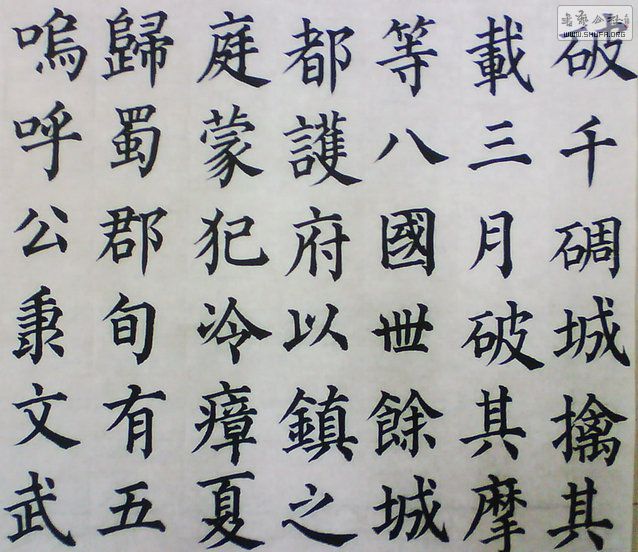 破千碉城擒其
載三月破其摩
等八國世餘城
都護府以鎮之
庭蒙犯冷瘴夏
歸蜀郡旬有五
嗚呼公秉文武
WWW.SHUFA.ORG